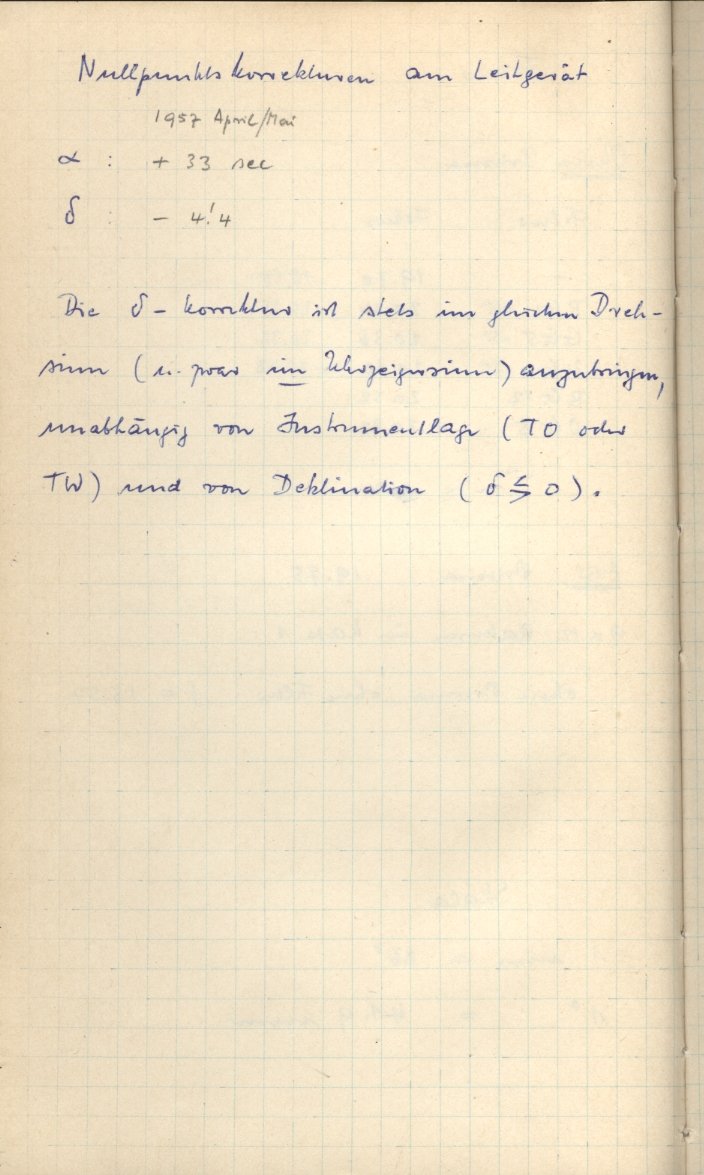 Nullpunktskorrekturen am Leitgerät
1957 April/Mai
α : + 33 sec
δ : - 4!4
Die δ - Korrektur ist stets im gleichen Dreh-
sinn (u. zwar im Uhrzeigersinn) anzubringen,
unabhängig von Instrumentlage (TO oder
TW) und von Deklination ( δ ⋚ 0 ).